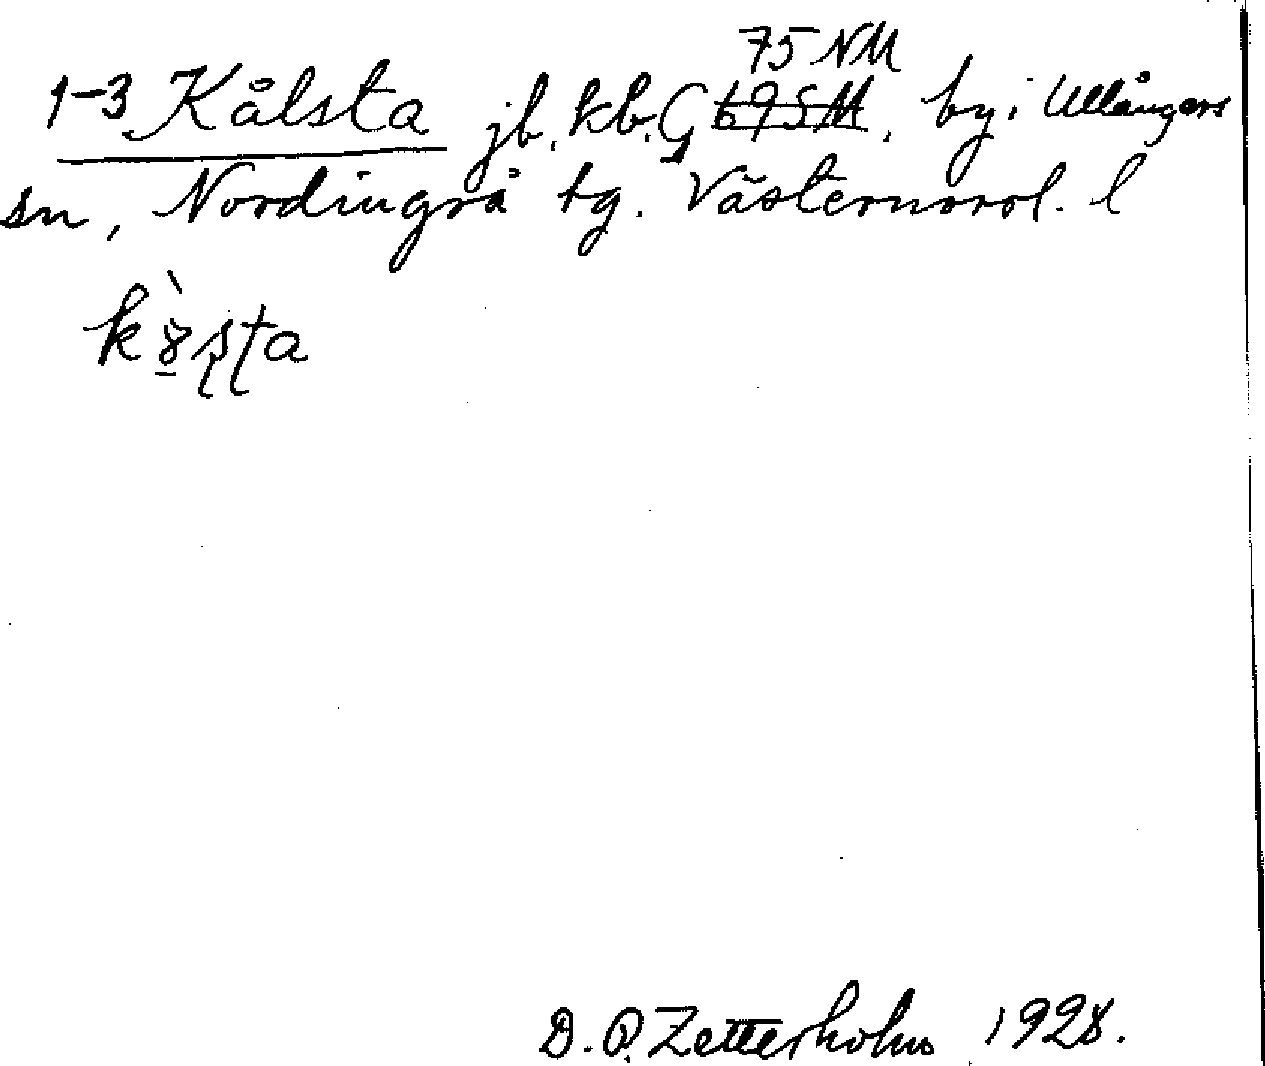 75 NM
1-3 Kålsta jb. kb. G 695M, by i Ullångers
sn, Nordingrå tg. Västernorrl. l
D.O. Zetterholm 1928.